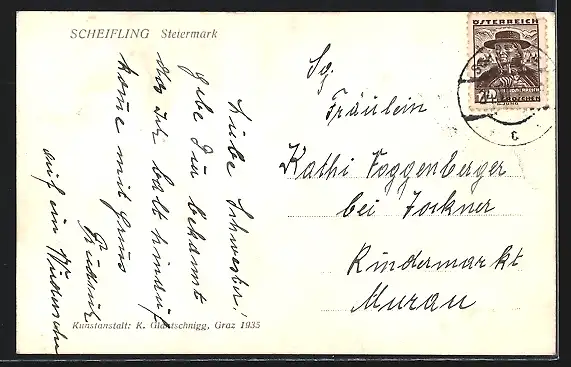 SCHEIFLING Steiermark
Liebe Schwester!
gebe Dir bekannt
das Ich balt hinauf
kome mit Gruss
auf ein Wiedersehn
Kunstanstalt: K. Glantschnigg, Graz 1935
ÖSTERREICH
24
C
Sg.
Fräulein
Kathi Foggenberger
bei Forkner
Rindermarkt
Murau